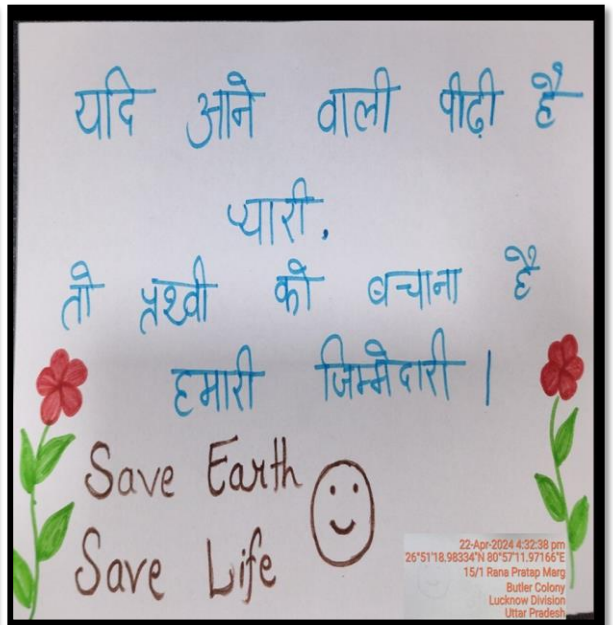 यदि आने वाली पीढ़ी है
प्यारी,
तो प्रथ्वी को बचाना है
हमारी जिम्मेदारी |
Save Earth
Save Life
22-Apr-2024 4:32:38 pm
26°51'18.98334"N 80°57'11.97166"E
15/1 Rana Pratap Marg
Butler Colony
Lucknow Division
Uttar Pradesh